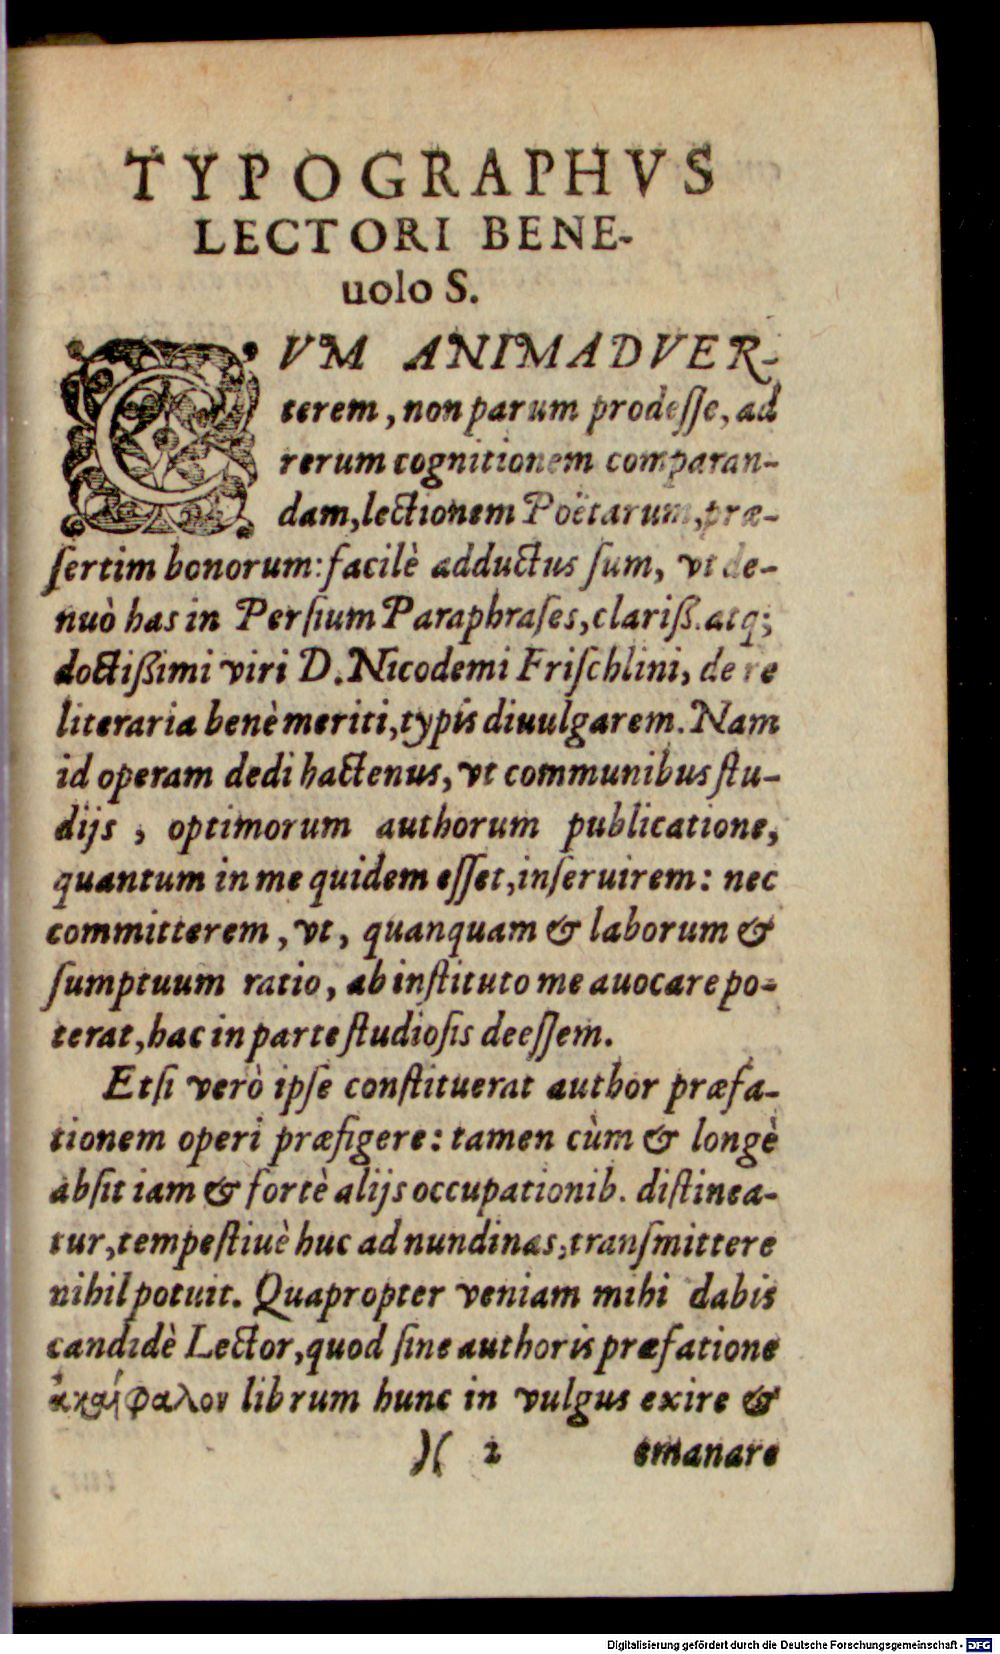 TYPOGRAPHVS
LECTORI BENE-
uolo S.
CVM ANIMADVER-
terem, non parum prodeſſe, ad
rerum cognitionem comparan-
dam, lectionem Poëtarum, præ-
ſertim bonorum: facilè adductus ſum, vt de-
nuò has in Perſium Paraphraſes, clariß. atq;
doctißimi viri D. Nicodemi Friſchlini, de re
literaria benè meriti, typis diuulgarem. Nam
id operam dedi hactenus, vt communibus ſtu-
dijs, optimorum authorum publicatione,
quantum in me quidem eſſet, inſeruirem: nec
committerem, vt, quanquam & laborum &
ſumptuum ratio, ab inſtituto me auocare po-
terat, hac in parte ſtudioſis deeſſem.
Etſi verò ipſe conſtituerat author præfa-
tionem operi præfigere: tamen cùm & longè
abſit iam & fortè alijs occupationib. diſtinea-
tur, tempeſtiuè huc ad nundinas, tranſmittere
nihil potuit. Quapropter veniam mihi dabis
candidè Lector, quod ſine authoris præfatione
librum hunc in vulgus exire &
)( 2 emanare
Digitalisierung gefördert durch die Deutsche Forschungsgemeinschaft - DFG